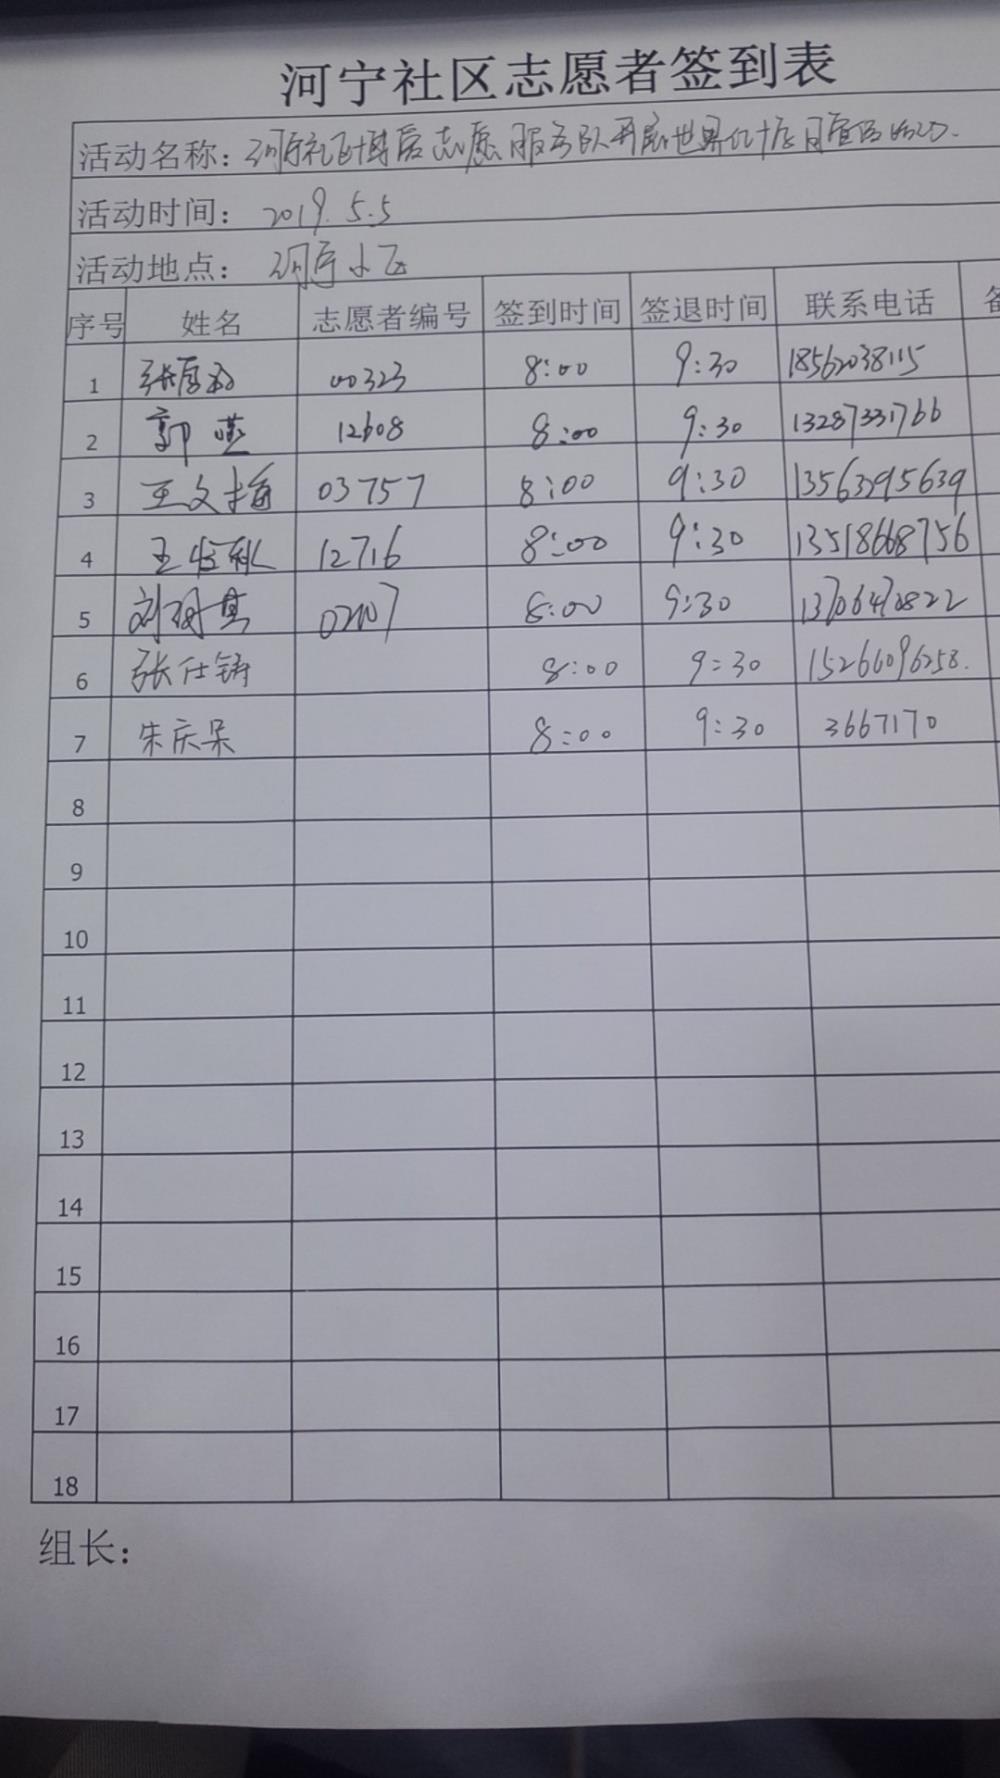 河宁社区志愿者签到表
活动名称：河宁社区博爱志愿服务队开展世界红十字日宣传活动.
活动时间：2019.5.5
活动地点：河宁小区
序号 姓名 志愿者编号 签到时间 签退时间 联系电话
1 8:00 9:30 18562038115
2 郭燕 12608 8:00 9:30 13287331766
3 王文梅 03757 8:00 9:30 13563295639
4 王 12716 8:00 9:30 13518668756
5 刘 8:00 9:30 13706470822
6 张仕铸 8:00 9:30 15266096258.
7 朱庆呆 8:00 9:30 3667170
8
9
10
11
12
13
14
15
16
17
18
组长：